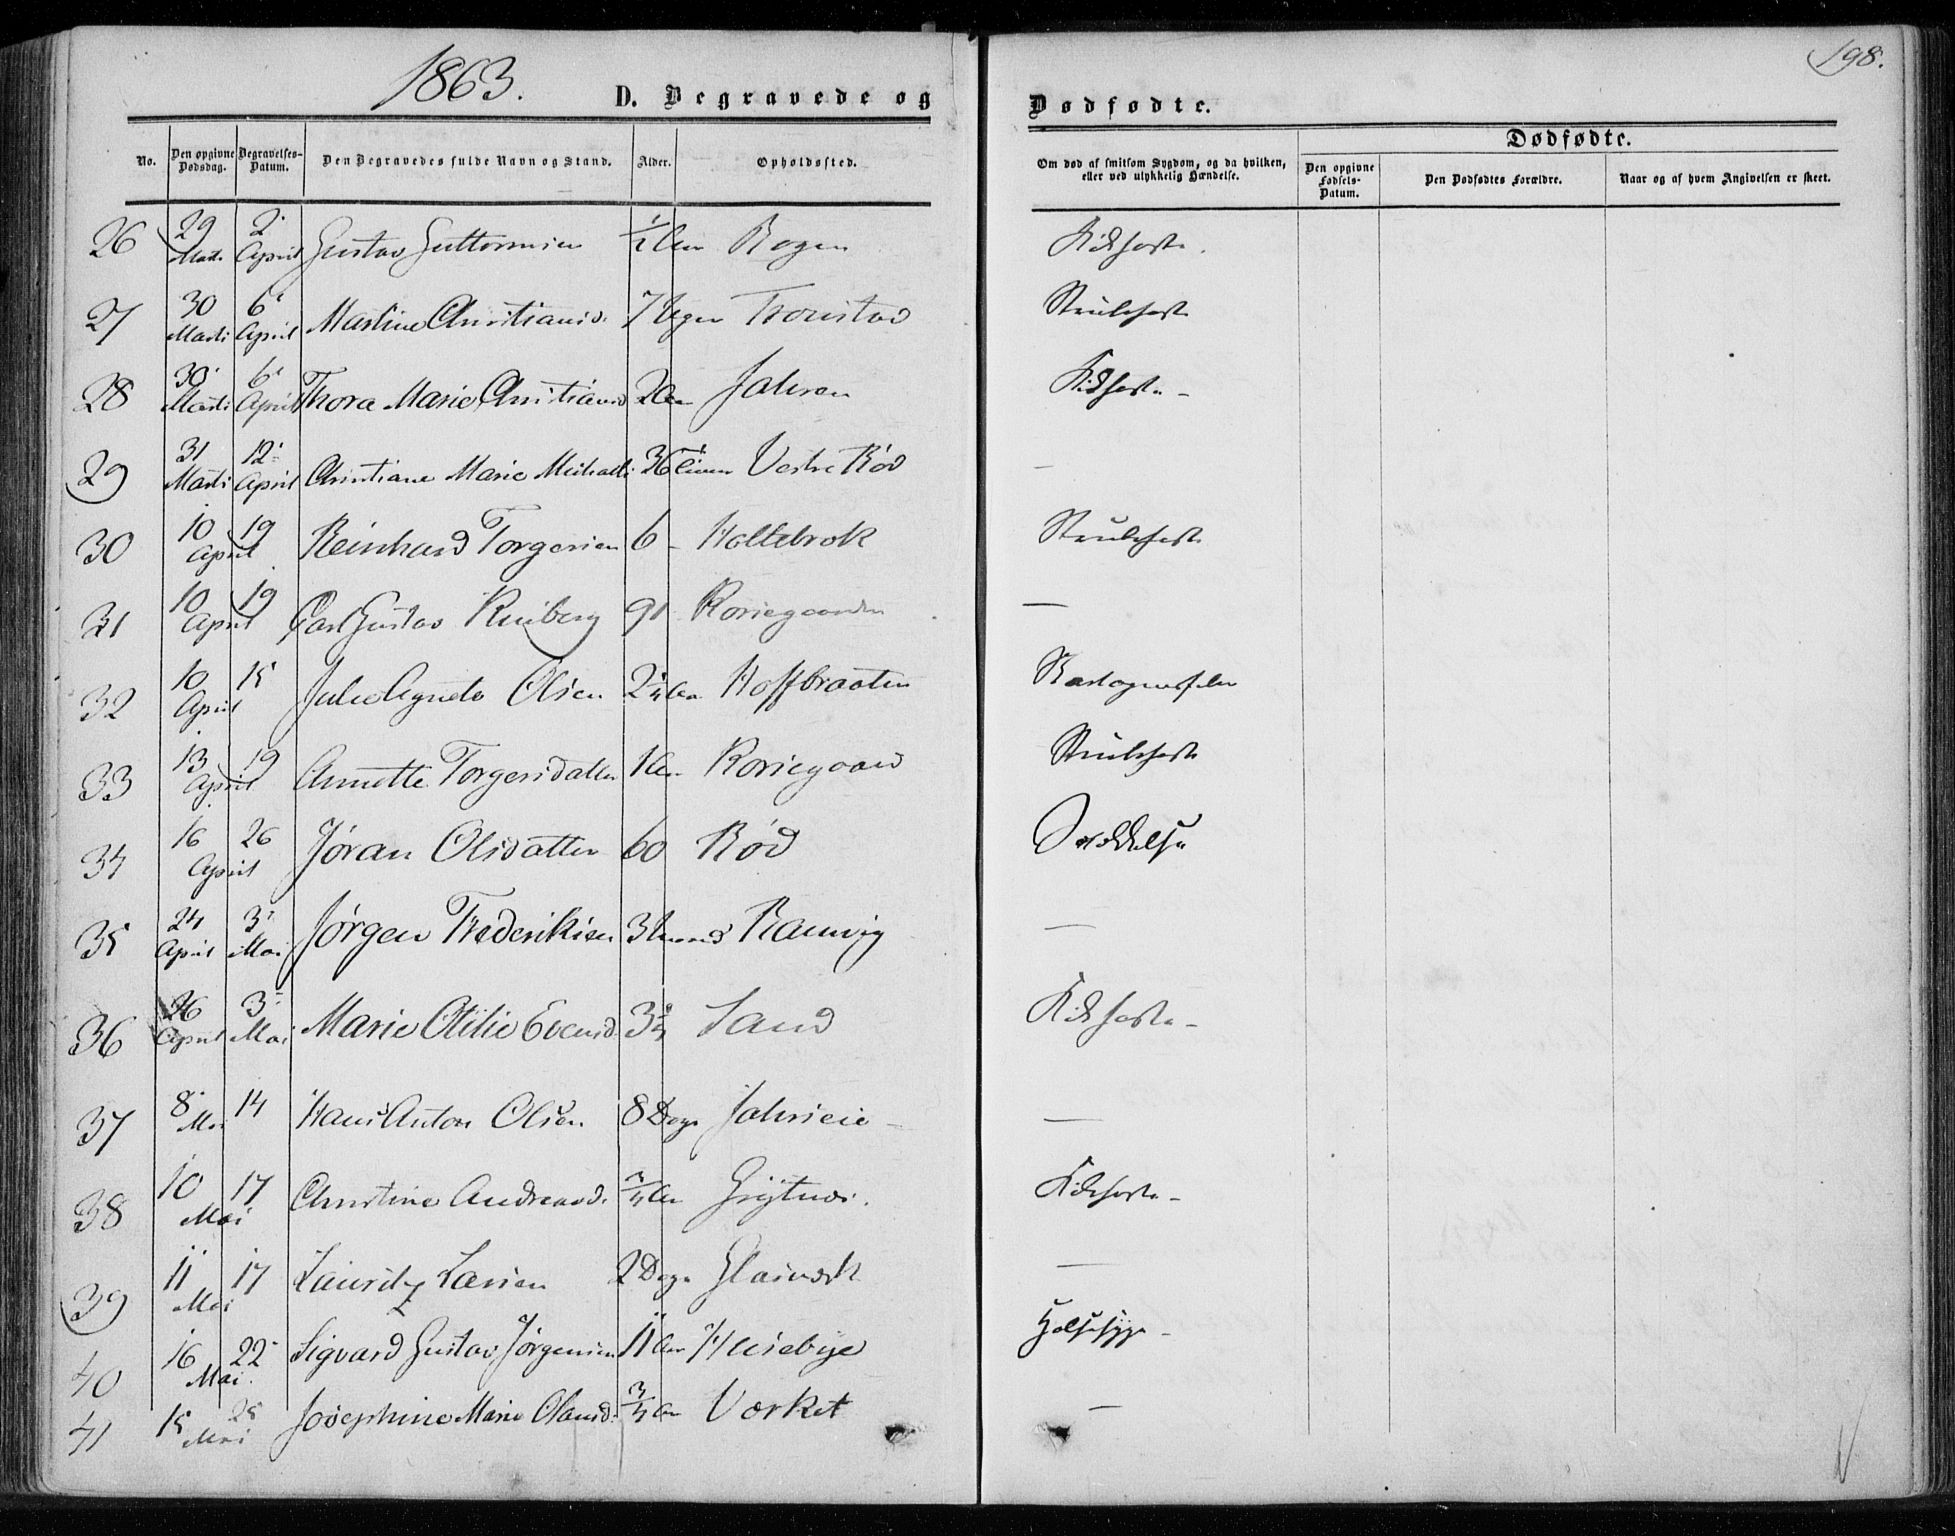 1863.
D. Begravede og
Dødfødte.
198.
No. Den opgivne Dødsdag. Begravelses-Datum. Den Begravedes fulde Navn og Stand. Alder. Opholdssted. Om død af smitsom Sygdom, og da hvilken, eller ved ulykkelig Hændelse. Dødfødte. Den opgivne Fødsels-Datum. Den Dødfødtes Forældre. Naar og af hvem Angivelsen er skeet.
26 29 Marti 2 April Gustav Guttormsen 1/2 Aar Bogen Kikhoste.
27 30 Marti 6 April Martine Christiansd. 7 Uger Tronstad Strubehoste
28 30 Marti 6 April Thora Marie Christiansd 2 Aar Jahren Kikhoste -
29 31 Marti 12 April Christiane Marie Michaels. 36 Timer Vestre Rød —
30 10 April 19 Reinhard Torgersen 6 - Holtebrok Strubehoste
31 10 April 19 Carl Gustav 91 Korsegaarden —
32 10 April 15 Julie Agnete Olsen 2 1/4 Aar Hoffbraaten
33 13 April 19 Annette Torgersdatter 1 Aar Korsegaard Strubehoste
34 16 April 26 Jøran Olsdatter 60 Rød
35 24 April 3 Mai Jørgen Frederiksen 3 Ramvig —
36 26 April 3 Mai Marie Otilie Evensd. 3 Sand Kikhoste -
37 8 Mai 14 Hans Anton Olsen 8 Dage Jahrseie —
38 10 Mai 17 Christine Andreasd. 3/4 Aar Grytnes. Kikhoste -
39 11 Mai 17 Lauritz Larsen 2 Dage Glasværk —
40 16 Mai 22 Sigvard Gustav Jørgensen 11 Aar Huseby Halssyge -
41 15 Mai 25 Josephine Marie Olausd. 3/4 Aar Værket —